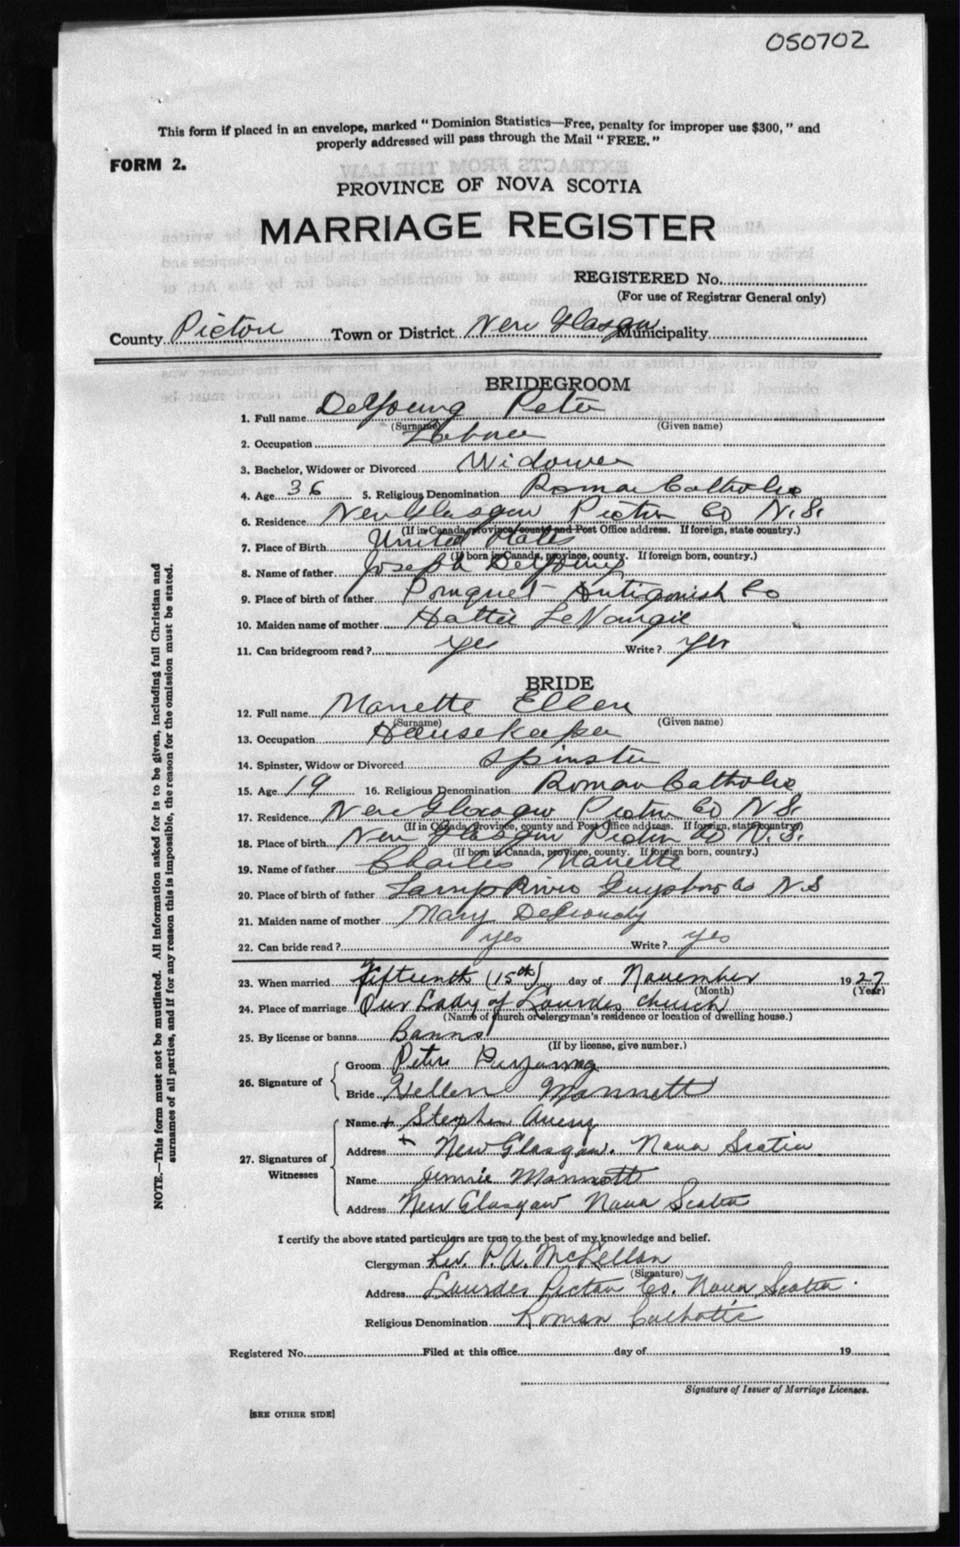 050702
This form if placed in an envelope, marked "Dominion Statistics—Free, penalty for improper use $300," and
properly addressed will pass through the Mail "FREE."
FORM 2.
PROVINCE OF NOVA SCOTIA
MARRIAGE REGISTER
REGISTERED No.
(For use of Registrar General only)
County Pictou Town or District New Glasgow Municipality
BRIDEGROOM
1. Full name DeYoung Peter
(Surname) (Given name)
2. Occupation Laborer
3. Bachelor, Widower or Divorced Widower
4. Age 36 5. Religious Denomination Roman Catholic
6. Residence New Glasgow Pictou Co N.S.
(If in Canada, province, county and Post Office address. If foreign, state country.)
7. Place of Birth United States
(If born in Canada, province, county. If foreign born, country.)
8. Name of father Joseph DeYoung
9. Place of birth of father Pomquet Antigonish Co
10. Maiden name of mother Hattie LeVangie
11. Can bridegroom read? yes Write? yes
BRIDE
12. Full name Mannette Ellen
(Surname) (Given name)
13. Occupation Housekeeper
14. Spinster, Widow or Divorced Spinster
15. Age 19 16. Religious Denomination Roman Catholic
17. Residence New Glasgow Pictou Co N.S.
(If in Canada, province, county and Post Office address. If foreign, state country)
18. Place of birth New Glasgow Pictou Co N.S.
(If born in Canada, province, county. If foreign born, country.)
19. Name of father Charles Mannette
20. Place of birth of father River Guysboro Co N.S
21. Maiden name of mother Mary
22. Can bride read? yes Write? yes
23. When married Fifteenth (15th) day of November 1927
(Month) (Year)
24. Place of marriage Our Lady of Lourdes church
(Name of church or clergyman's residence or location of dwelling house.)
25. By license or banns Banns
(If by license, give number.)
26. Signature of
Groom Peter DeYoung
Bride Hellen Mannett
27. Signatures of Witnesses
Name + Stephen Avery
Address + New Glasgow. Nova Scotia
Name Jennie Mannett
Address New Glasgow Nova Scotia
I certify the above stated particulars are true to the best of my knowledge and belief.
Clergyman Rev. P. A. McLellan
(Signature)
Address Lourdes Pictou Co. Nova Scotia.
Religious Denomination Roman Catholic
Registered No. Filed at this office day of 19
Signature of Issuer of Marriage Licenses.
[SEE OTHER SIDE]
NOTE.—This form must not be mutilated. All information asked for is to be given, including full Christian and
surnames of all parties, and if for any reason this is impossible, the reason for the omission must be stated.